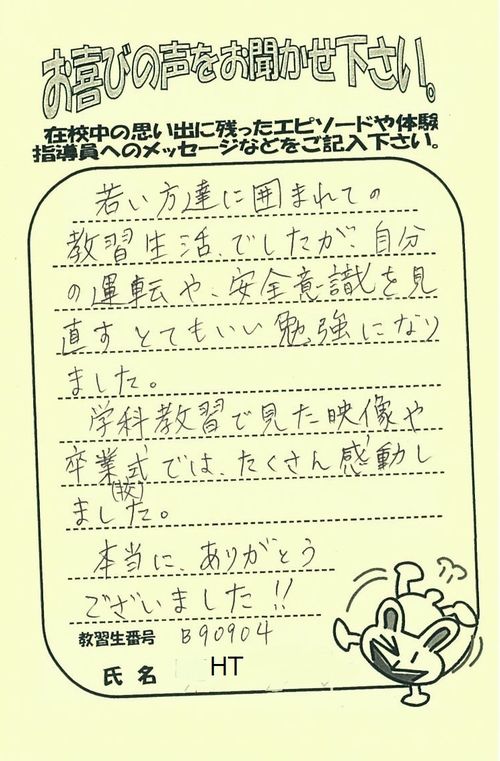 お喜びの声をお聞かせ下さい。
在校中の思い出に残ったエピソードや体験
指導員へのメッセージなどをご記入下さい。
若い方達に囲まれての
教習生活、でしたが、自分
の運転や、安全意識を見
直すとてもいい勉強になり
ました。
学科教習で見た映像や
卒業式では、たくさん感動し
(校)
ました。
本当に、ありがとう
ございました!!
教習生番号 B90904
氏名 HT